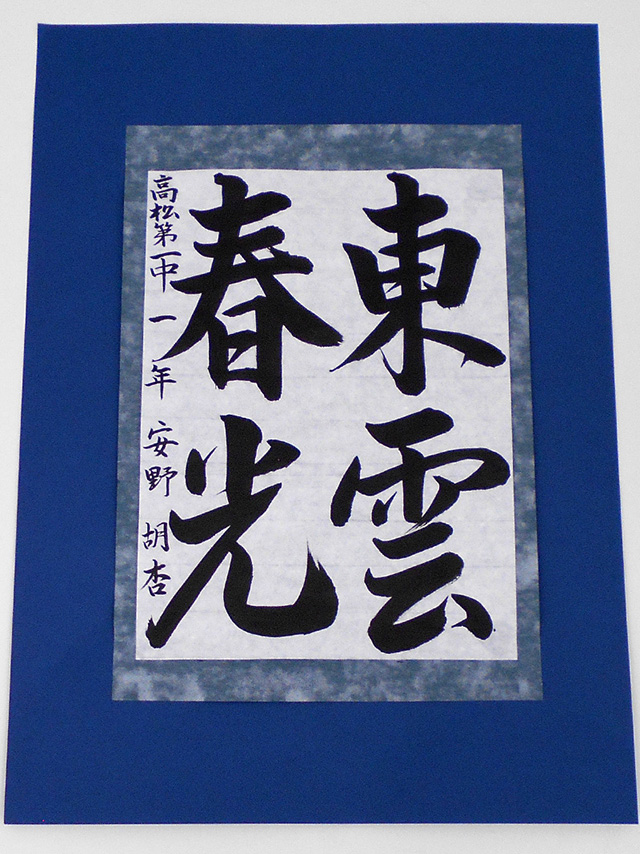 東雲
春光
高松第一中 一年 安野 胡杏